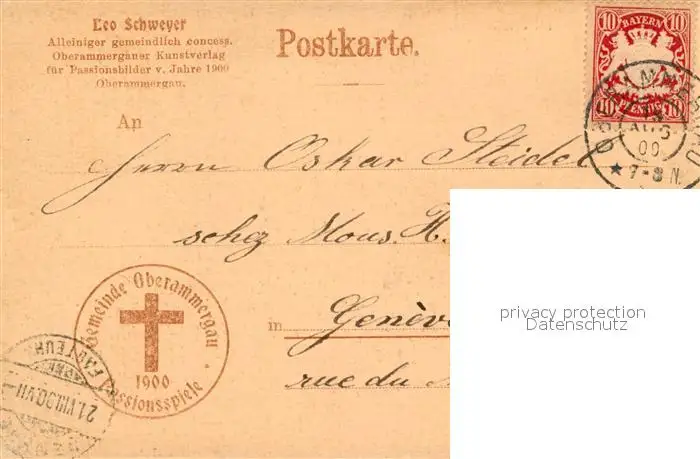 Leo Schweyer
Alleiniger gemeindlich concess.
Oberammergauer Kunstverlag
für Passionsbilder v. Jahre 1900
Oberammergau.
Postkarte.
10 BAYERN 10
10 PFENNIG 10
AUG
00
7-8 N.
An
Herrn Oskar Steidel
chez Mons. H.
in Genève
rue du
Gemeinde Oberammergau
1900
Passionsspiele
21.VIII.00.VII
FACTEUR
privacy protection
Datenschutz